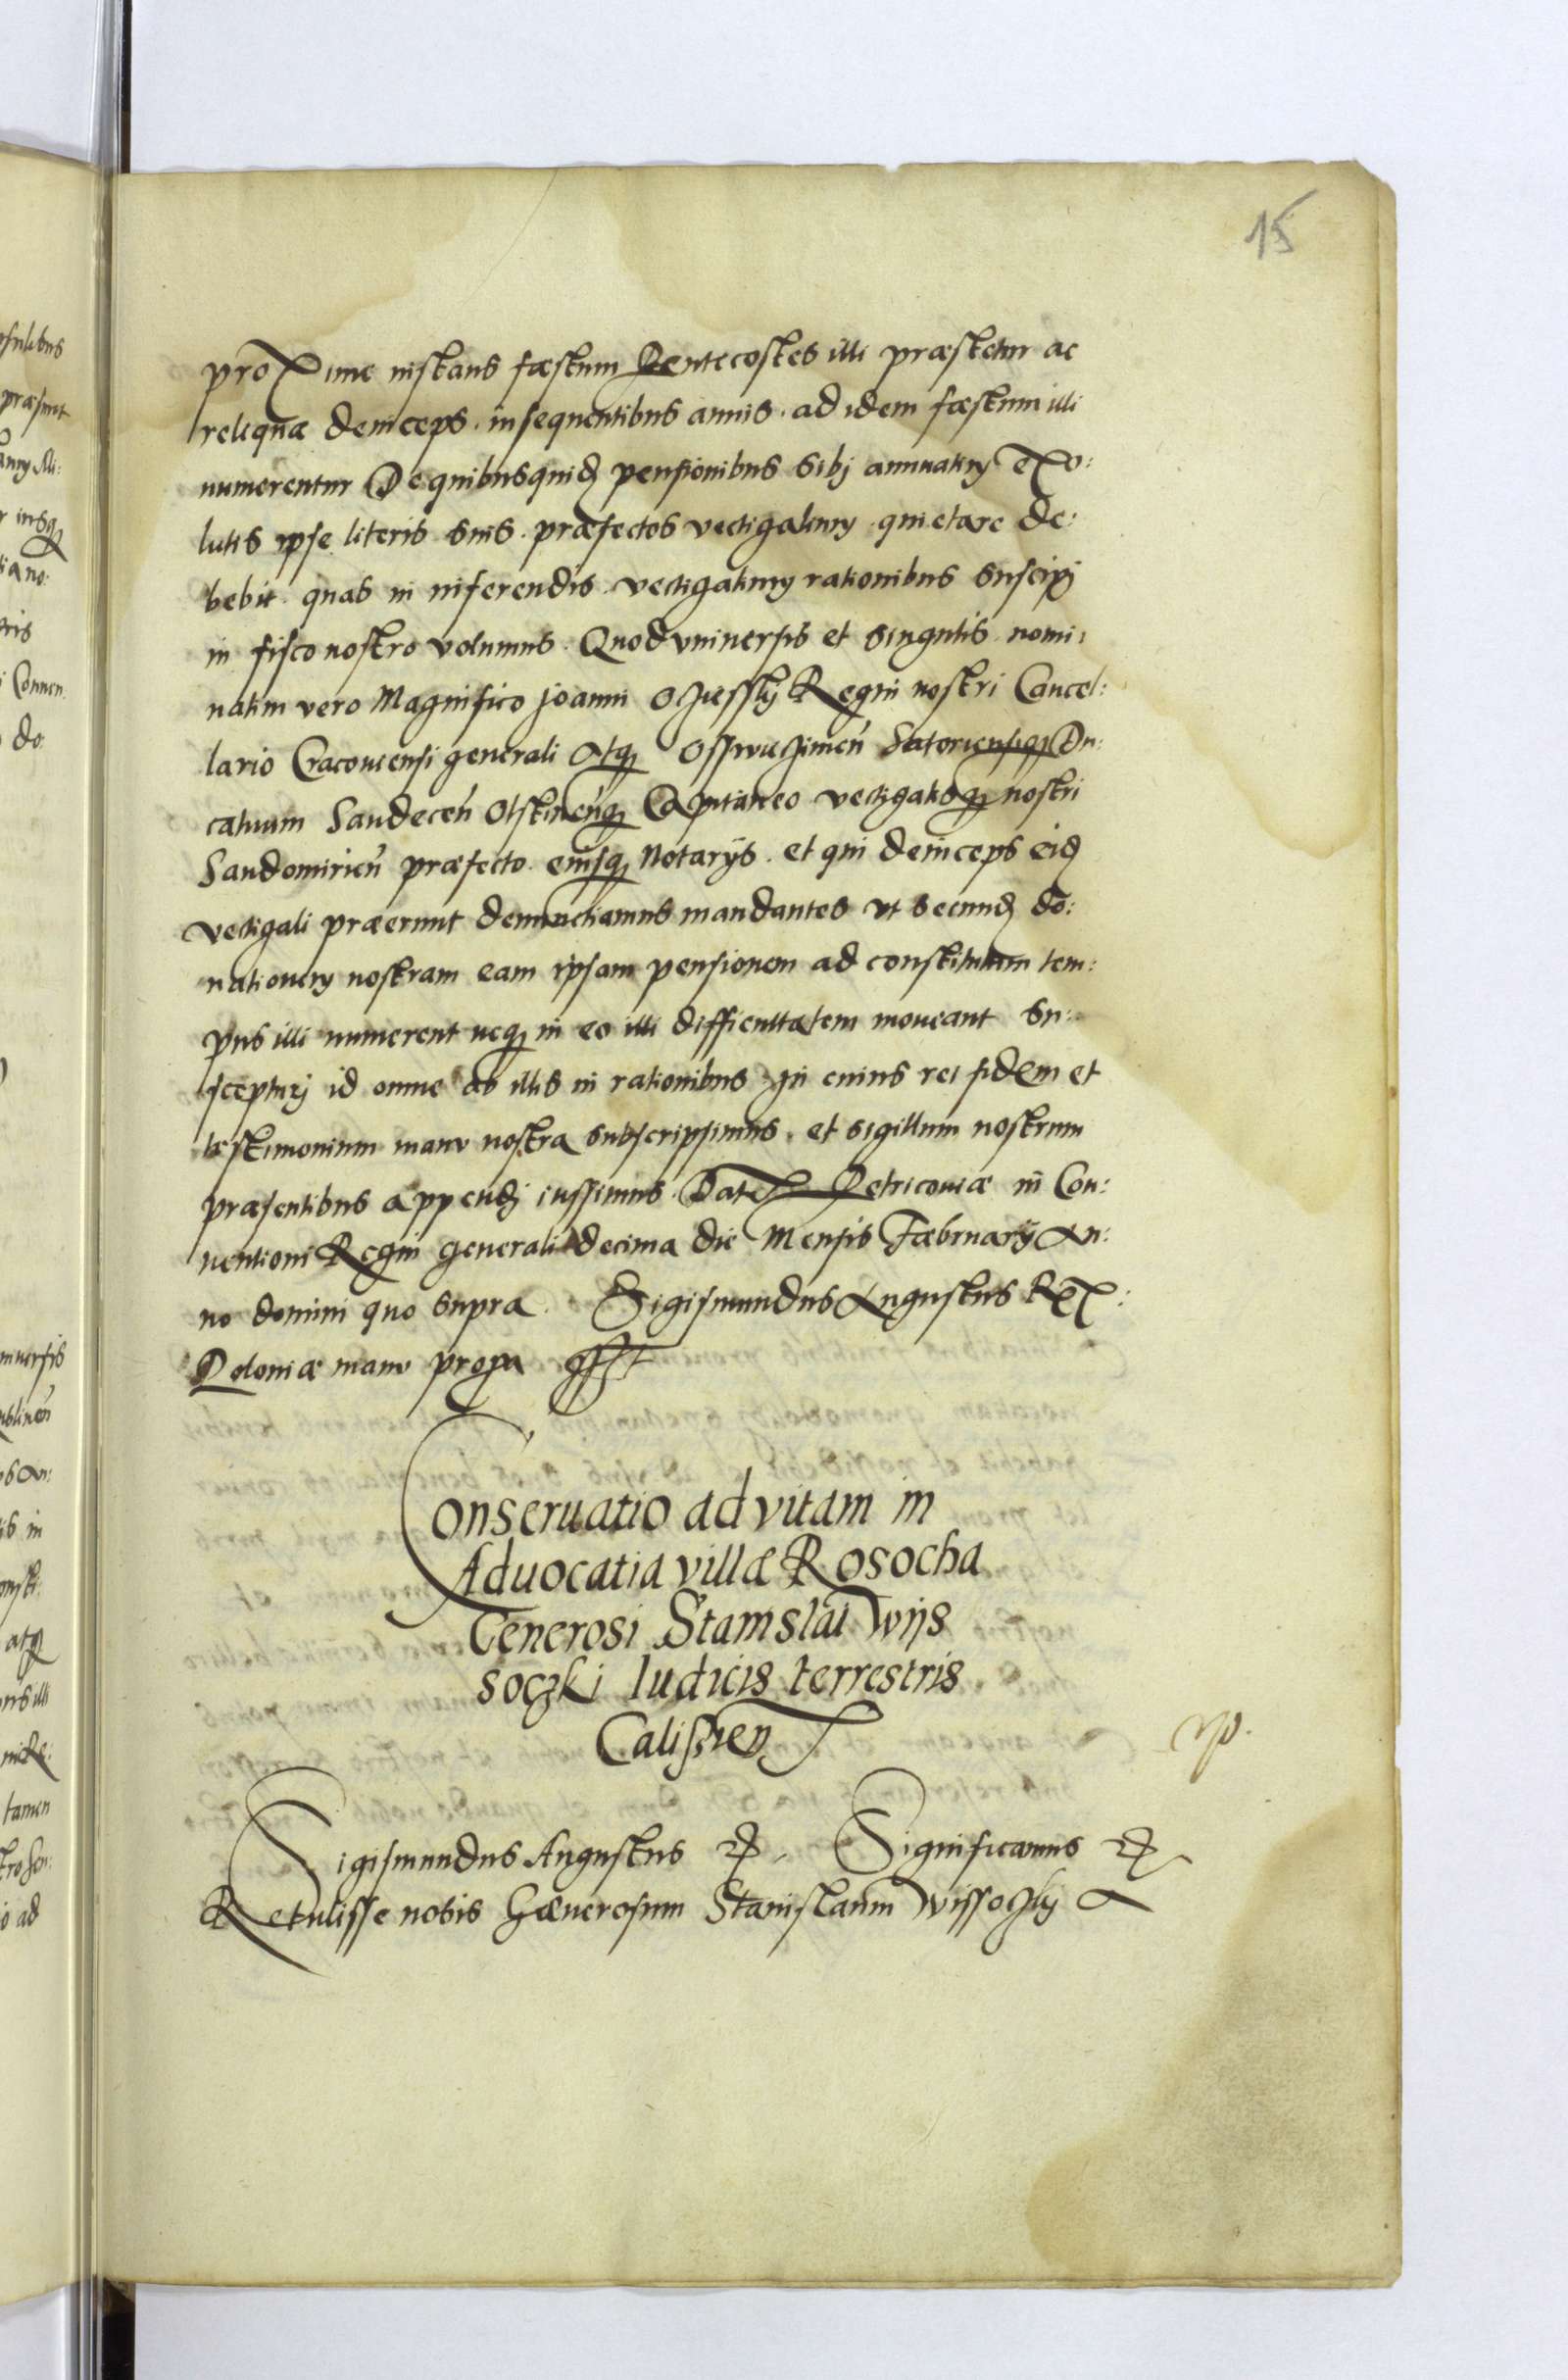 15
proxime instans fæstum Pentecostes illi præstetur ac
reliquæ deinceps. insequentibus annis. ad idem fæstum illi
numerentur De quibusquid pensionibus sibj annuatim exo:
lutis ipse literis suis. præfectos vectigalium. quietare de:
bebit. quas in inferendis. vectigalium rationibus suscipj
in fisco nostro volumus. Quod vniuersis et singulis nomi:
natim vero Magnifico Joanni Oczessky Regni nostri Cancel:
lario Cracouiensi generali Atq Osswieczimen Satoriensiq Du:
catuum Sandecen Olstinenq Capitaneo vectigalisq nostri
Sandomirien præfecto. eiusq Notarijs. et qui deinceps eid
vectigali præerunt denunctiamus mandantes vt secund do:
nationem nostram eam ipsam pensionem ad constitutum tem:
pus illi numerent neq in eo illi difficultatem moueant su:
scepturj id omne ab illis in rationibus In cuius rei fidem et
testimonium manv nostra subscripsimus. et sigillum nostrum
præsentibus appendj iussimus. Dat Petricouiæ in Con:
uentioni Regni generali decima die Mensis Fæbruarij An:
no domini quo supra. Sigismundus Augustus Rex:
Poloniæ manv propa sst
Conseruatio ad vitam in
Aduocatia villæ Rosocha
Generosi Stanislai Wijs
soczki Iudicis terrestris
Calissien
Sigismundus Augustus &. Significamus &
Retulisse nobis Gænerosum Stanislaum Wissoczky &